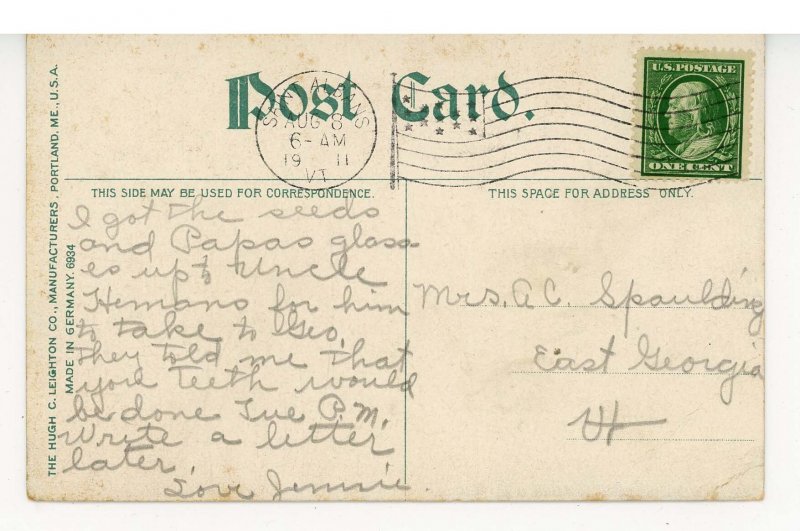 Post Card.
ST. ALBANS
AUG 8
6-AM
19 11
VT.
U.S. POSTAGE
ONE CENT
THE HUGH C. LEIGHTON CO., MANUFACTURERS, PORTLAND, ME., U.S.A.
MADE IN GERMANY. 6934
THIS SIDE MAY BE USED FOR CORRESPONDENCE.
THIS SPACE FOR ADDRESS ONLY.
I got the seeds
and Papas glass
es up to Uncle
Hemans for him
to take to Geo.
They told me that
your teeth would
be done Tue P.M.
Write a letter
later.
Love Jennie.
Mrs. A C. Spaulding
East Georgia
Vt